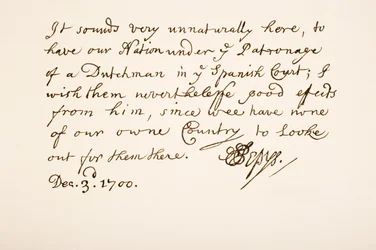 It sounds very unnaturally here, to
have our Nation under yᵉ Patronage
of a Dutchman in yᵉ Spanish Court; I
wish them nevertheless good efects
from him, since wee have none
of our owne Country to Looke
out for them there. SPepys.
Dec. 3ᵈ. 1700.